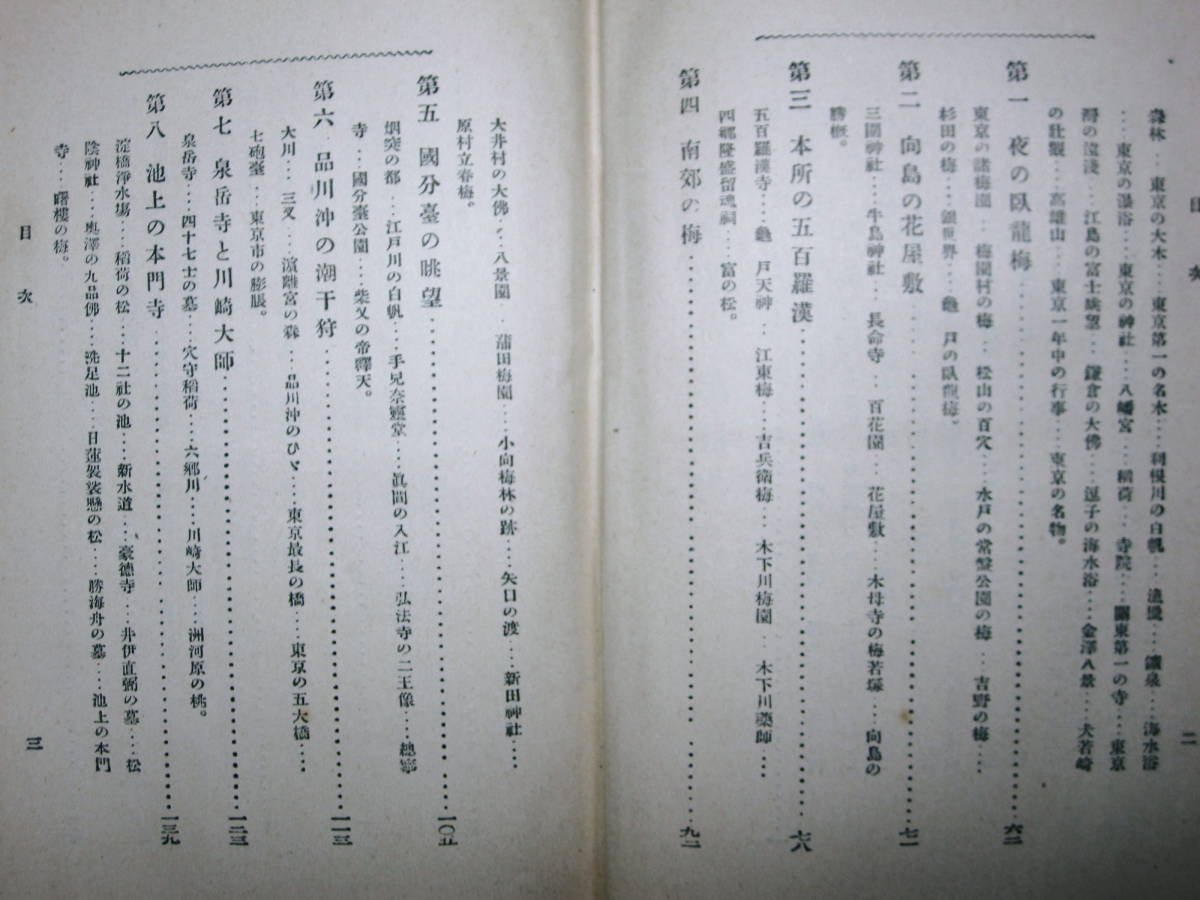 目次
二
森林…東京の大木…東京第一の名木…利根川の白帆…漁獵…鑛泉…海水浴
…東京の瀑浴…東京の神社…八幡宮…稲荷…寺院…關東第一の寺…東京
灣の遠淺…江島の富士眺望…鎌倉の大佛…逗子の海水浴…金澤八景…犬若崎
の壯觀…高雄山…東京一年中の行事…東京の名物。
第一 夜の臥龍梅……六二
東京の諸梅園…梅園村の梅…松山の百穴…水戸の常盤公園の梅…吉野の梅…
杉田の梅…銀世界…龜戸の臥龍梅。
第二 向島の花屋敷……七一
三圍神社…牛島神社…長命寺…百花園…花屋敷…木母寺の梅若塚…向島の
勝概。
第三 本所の五百羅漢……七八
五百羅漢寺…龜戸天神…江東梅…吉兵衛梅…木下川梅園…木下川藥師…
西郷隆盛留魂祠…富の松。
第四 南郊の梅……九二
大井村の大佛…八景園…蒲田梅園…小向梅林の跡…矢口の渡…新田神社…
原村立春梅。
第五 國分臺の眺望……一〇五
烟突の都…江戸川の白帆…手兒奈靈堂…眞間の入江…弘法寺の二王像…總寧
寺…國分臺公園…柴又の帝釋天。
第六 品川沖の潮干狩……一一三
大川…三叉…濱離宮の森…品川沖のひゞ…東京最長の橋…東京の五大橋…
七砲臺…東京市の膨脹。
第七 泉岳寺と川崎大師……一二三
泉岳寺…四十七士の墓…穴守稲荷…六郷川…川崎大師…洲河原の桃。
第八 池上の本門寺……一三九
淀橋淨水場…稲荷の松…十二社の池…新水道…豪德寺…井伊直弼の墓…松
陰神社…奥澤の九品佛…洗足池…日蓮袈裟懸の松…勝海舟の墓…池上の本門
寺…曙樓の梅。
目次
三